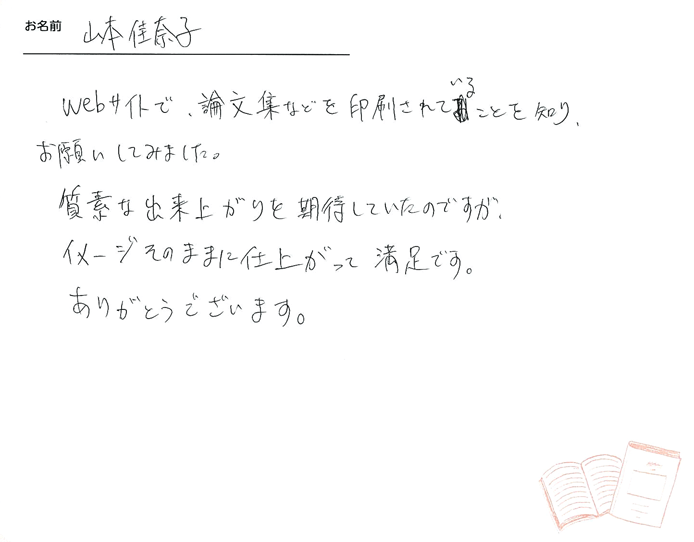 お名前 山本佳奈子
Webサイトで、論文集などを印刷されていることを知り、
お願いしてみました。
質素な出来上がりを期待していたのですが、
イメージそのままに仕上がって満足です。
ありがとうございます。